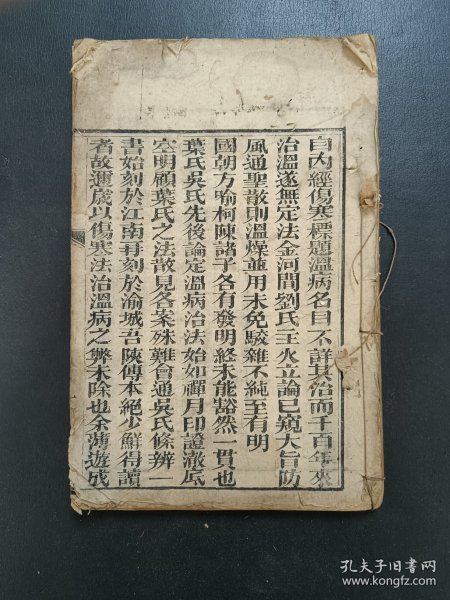 自內經傷寒標題溫病名目不詳其治而千百年來
治溫遂無定法金河間劉氏主火立論已窺大旨防
風通聖散則溫燥並用未免駁雜不純至有明
國朝方喻柯陳諸子各有發明終未能豁然一貫也
葉氏吳氏先後論定溫病治法始如禪月印證澈底
空明顧葉氏之法散見各案殊難會通吳氏條辨一
書始刻於江南再刻於渝城吾陝傳本絕少鮮得讀
者故運歲以傷寒法治溫病之弊未除也余薄遊成
孔夫子旧书网
www.kongfz.com